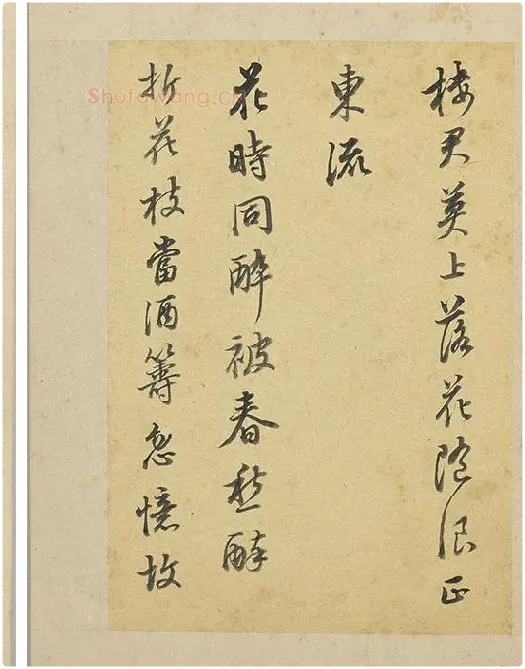 樓君莫上落花隨浪正
東流
花時同醉破春愁醉
折花枝當酒籌忽憶故